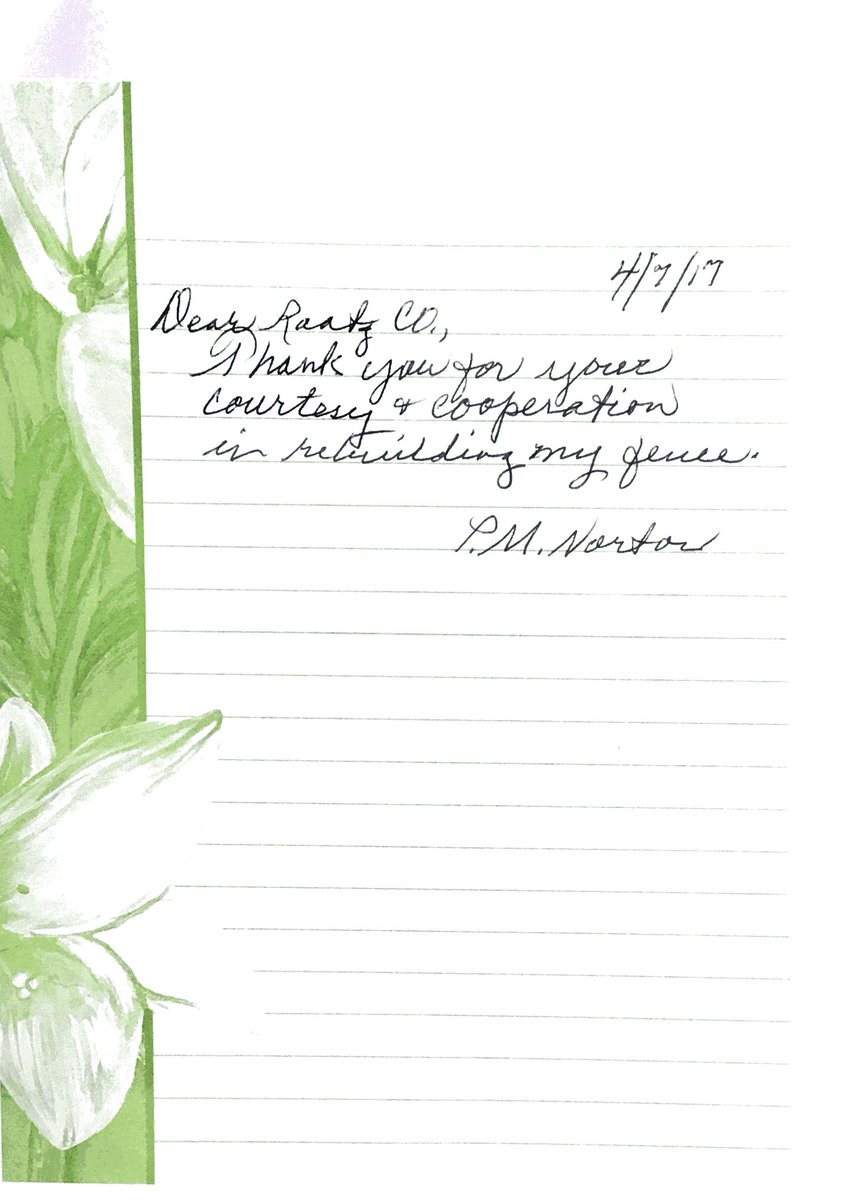 4/7/17
Dear Raatz CO.,
Thank you for your
courtesy & cooperation
in rebuilding my fence.
P.M. Norton